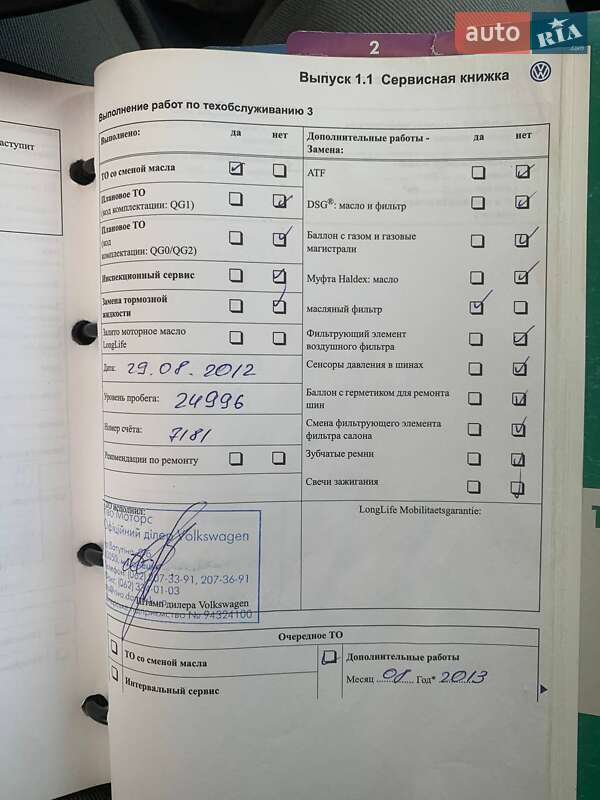 auto RIA.com
2
Выпуск 1.1 Сервисная книжка
Выполнение работ по техобслуживанию 3
аступит
Выполнено: да нет
ТО со сменой масла
Плановое ТО
(код комплектации: QG1)
Плановое ТО
(код
комплектации: QG0/QG2)
Инспекционный сервис
Замена тормозной
жидкости
Залито моторное масло
LongLife
Дата: 29.08.2012
Уровень пробега: 24996
Номер счёта: 7181
Рекомендации по ремонту
Дополнительные работы - да нет
Замена:
ATF
DSG®: масло и фильтр
Баллон с газом и газовые
магистрали
Муфта Haldex: масло
масляный фильтр
Фильтрующий элемент
воздушного фильтра
Сенсоры давления в шинах
Баллон с герметиком для ремонта
шин
Смена фильтрующего элемента
фильтра салона
Зубчатые ремни
Свечи зажигания
исполнил:
Моторс
Офіційний ділер Volkswagen
207-33-91, 207-36-91
-01-03
Штамп дилера Volkswagen
№ 94324100
LongLife Mobilitaetsgarantie:
Очередное ТО
ТО со сменой масла
Интервальный сервис
Дополнительные работы
Месяц 08 Год* 2013